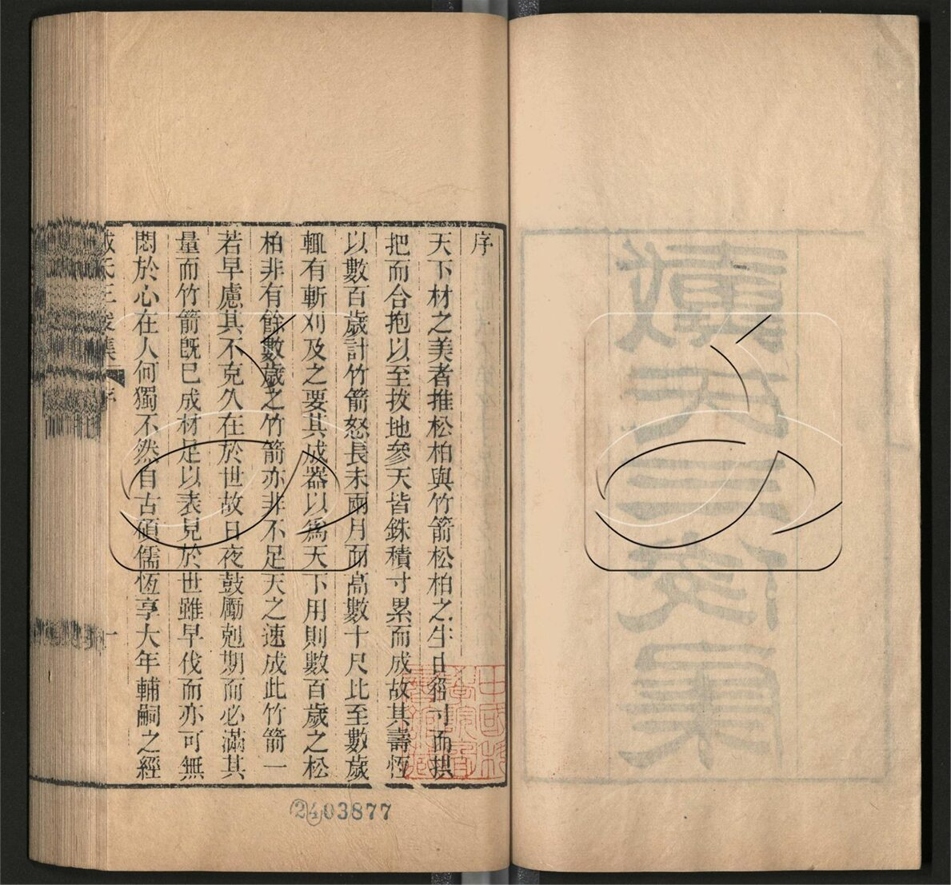 序
天下材之美者推松柏與竹箭松柏之生由徑寸而拱
把而合抱以至拔地參天皆銖積寸累而成故其壽恆
以數百歲計竹箭怒長未兩月而高數十尺比至數歲
輒有斬刈及之要其成器以為天下用則數百歲之松
柏非有餘數歲之竹箭亦非不足天之速成此竹箭一
若早慮其不克久在於世故日夜鼓勵剋期而必滿其
量而竹箭既已成材足以表見於世雖早伐而亦可無
悶於心在人何獨不然自古碩儒恆享大年輔嗣之經
氏三俊集 序 一
2403877